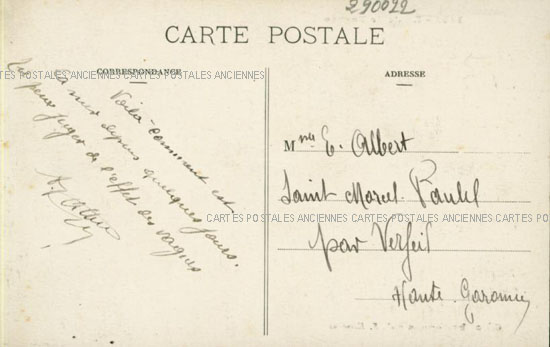 290022
CARTE POSTALE
CORRESPONDANCE
Voilà comment est
la mer depuis quelques jours.
Tu peux juger de l'effet des vagues
ADRESSE
Mlle E. Albert
Saint Marcel Paulel
par Verfeil
Haute Garonne
CARTES POSTALES ANCIENNES CARTES POSTALES ANCIENNES CARTES POSTALES ANCIENNES
CARTES POSTALES ANCIENNES CARTES POSTALES ANCIENNES